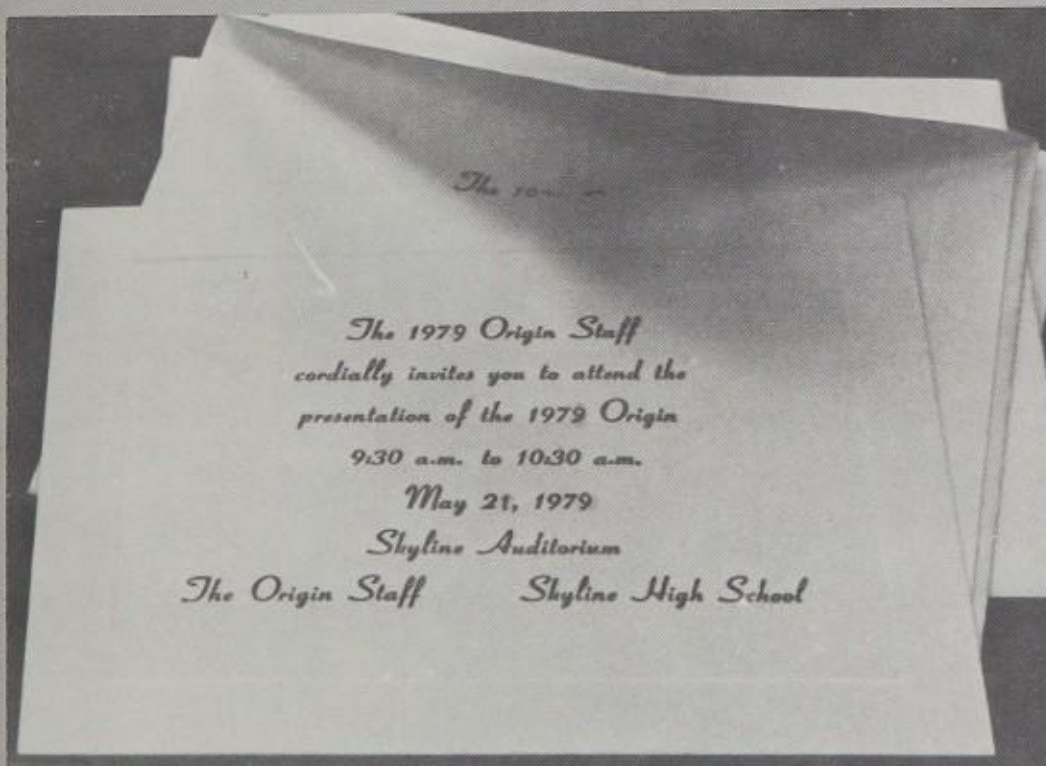 The
The 1979 Origin Staff
cordially invites you to attend the
presentation of the 1979 Origin
9:30 a.m. to 10:30 a.m.
May 21, 1979
Skyline Auditorium
The Origin Staff Skyline High School